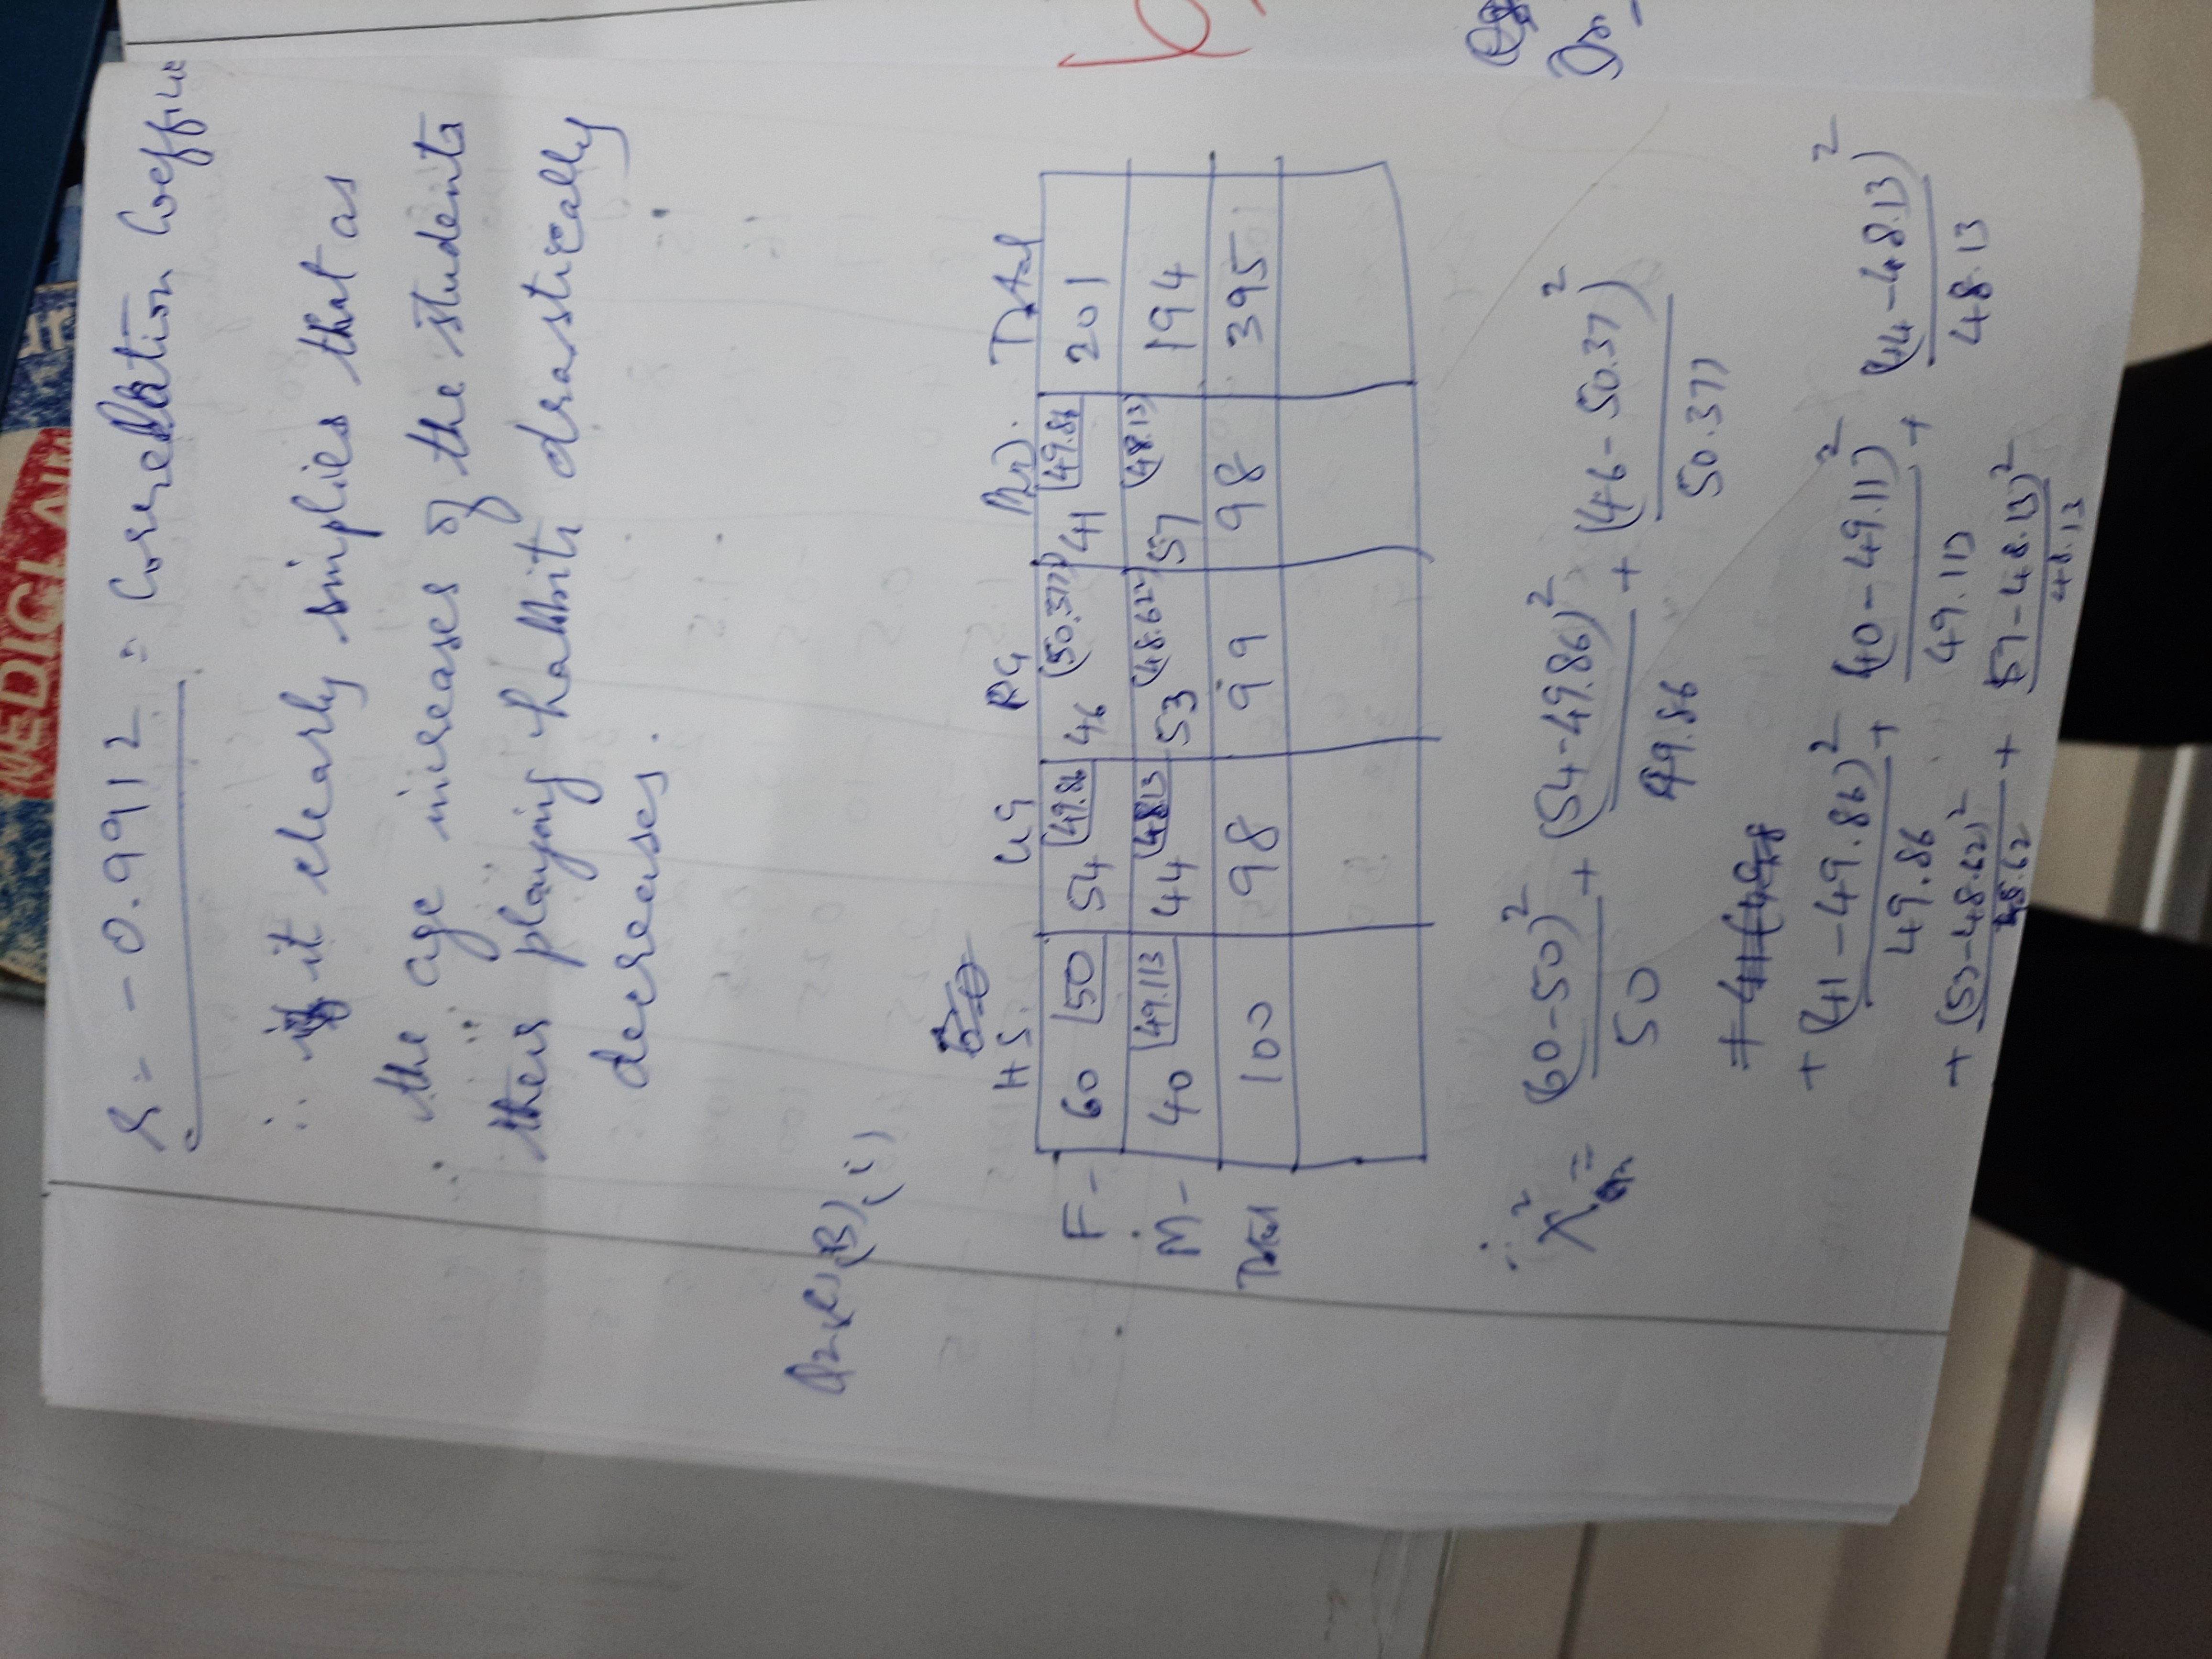 MEDICLAIM
r = -0.9912 = Correlation Coeffic
∴ it clearly implies that as
the age increases of the students
their playing habbits drastically
decreases.
(B) (i)
H S. UG PG Ph.D. Total
F - 60 50 54 49.86 46 (50.377) 41 49.86 201
M - 40 49.113 44 48.13 53 (48.622) 57 (48.13) 194
Total 100 98 99 98 395
∴ X² = (60-50)²/50 + (54-49.86)²/49.86 + (46-50.37)²/50.377
+ (41-49.86)²/49.86 + (40-49.11)²/49.113 + (44-48.13)²/48.13
+ (53-48.62)²/48.62 + (57-48.13)²/48.13